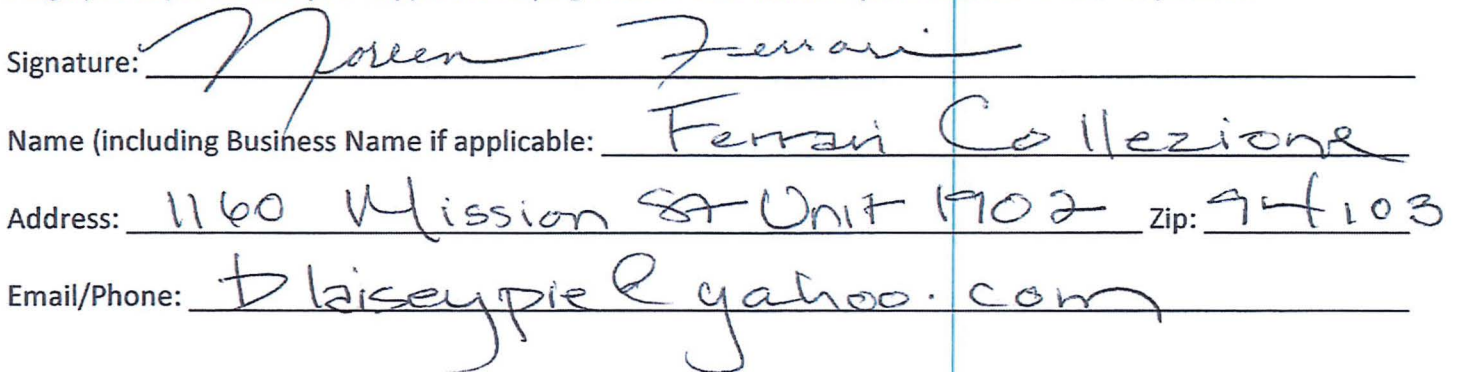 Signature: Noreen Ferrari
Name (including Business Name if applicable: Ferrari Collezione
Address: 1160 Mission St Unit 1902 Zip: 94103
Email/Phone: blaiseypie@yahoo.com